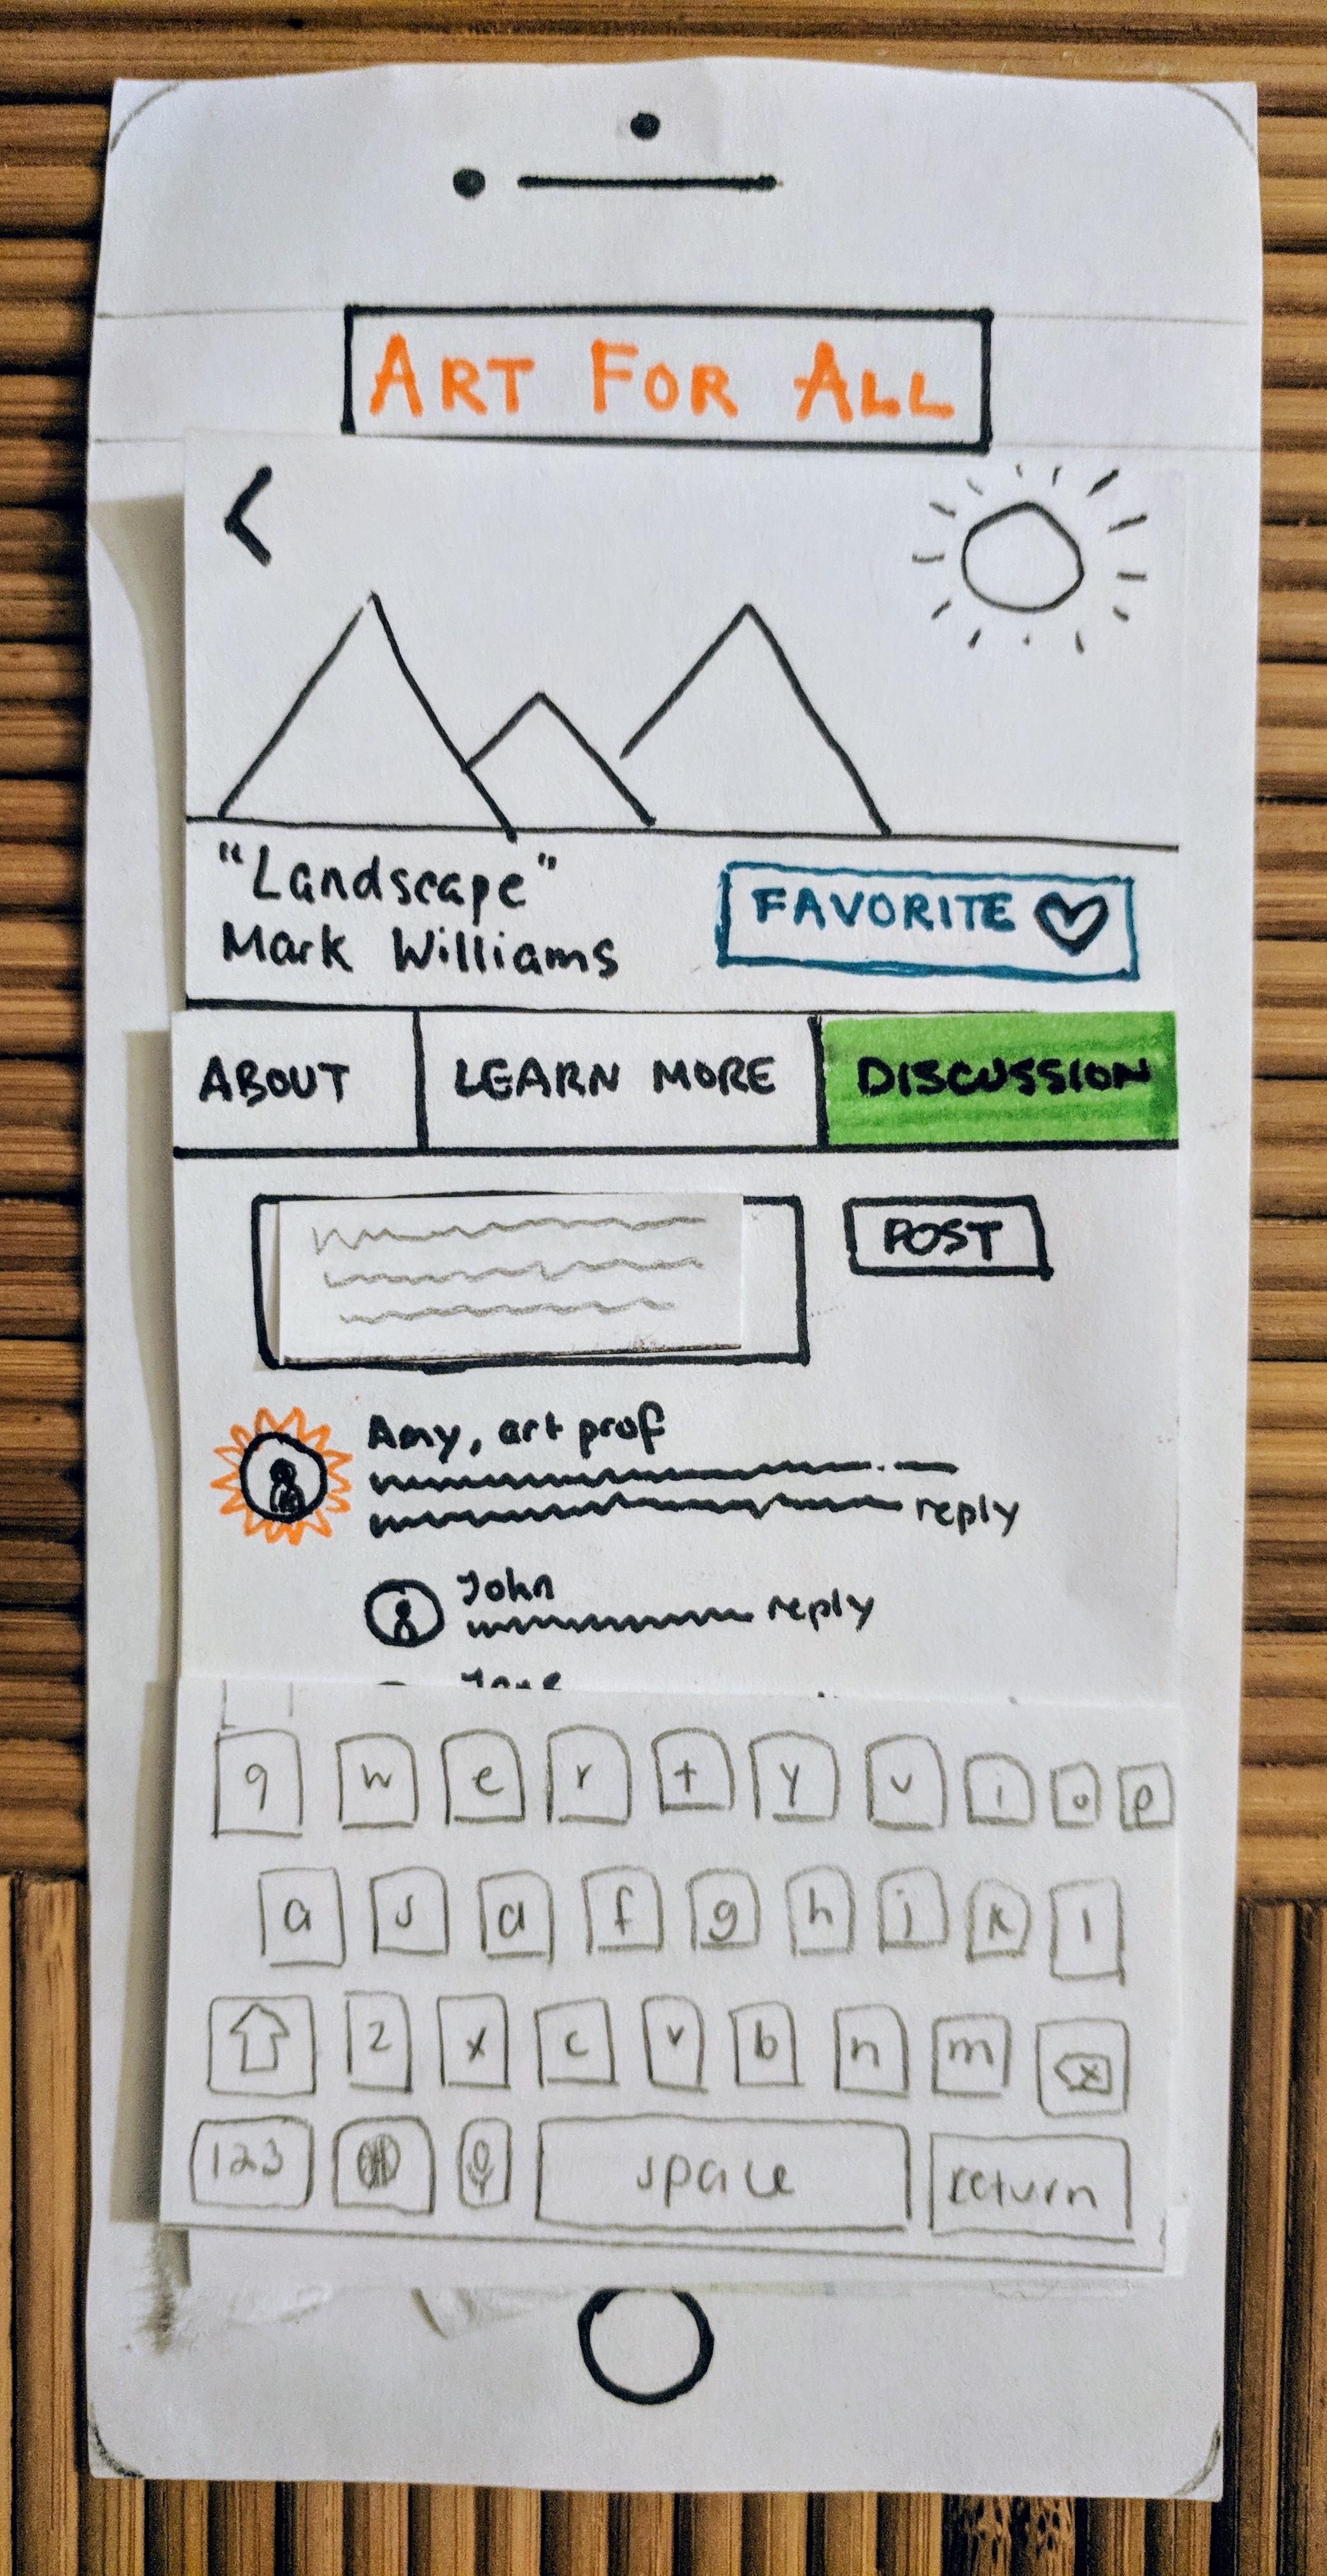 ART FOR ALL
"Landscape"
Mark Williams
FAVORITE
ABOUT
LEARN MORE
DISCUSSION
POST
Amy, art prof
reply
John
reply
q w e r t y u i o p
a s d f g h j k l
z x c v b n m
123 space return